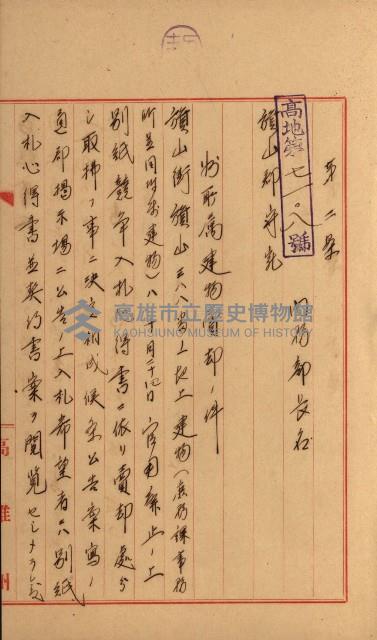 第二号
高地第七一・八號
内務部長名
旗山郡守宛
州所属建物賣却ノ件
旗山街旗山三八八号ノ地上建物(庶務課事務
所並同附属建物)八 月二十四日官用廃止ノ上
別紙競争入札心得書ニ依リ賣却処分
シ取拂フ事ニ決定相成候条公告案写ノ
通郡掲示場ニ公告ノ上入札希望者ニハ別紙
入札心得書並契約書案ヲ閲覧セシメラレ
高雄州
高雄市立歷史博物館
KAOHSIUNG MUSEUM OF HISTORY